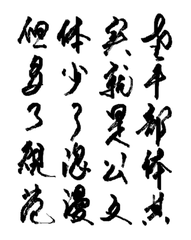 老干部体其
实就是公文
体少了浪漫
但多了规范